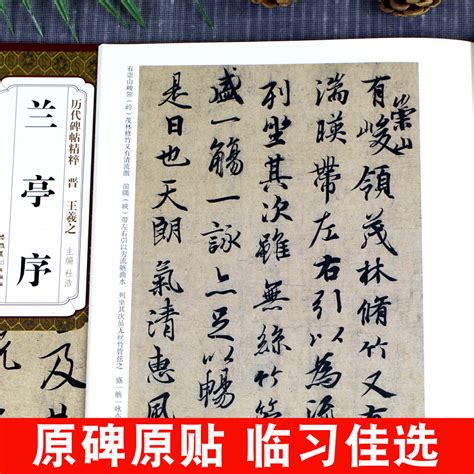 历代碑帖精粹 晋 王羲之
兰亭序
主编 杜浩
及
有崇山峻领（岭）茂林修竹又有清流激 湍暎（映）带左右引以为流觞曲水 列坐其次虽无丝竹管弦之 盛一觞一咏
有崇山峻領茂林脩竹又
湍暎帶左右引以為
列坐其次雖無絲竹
盛一觴一詠亦足以暢
是日也天朗氣清惠風
原碑原贴 临习佳选